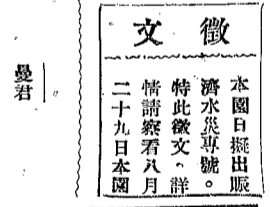 徵文
本園日擬出賑
濟水災專號。
特此徵文、詳
情請察看八月
二十九日本園
曼君